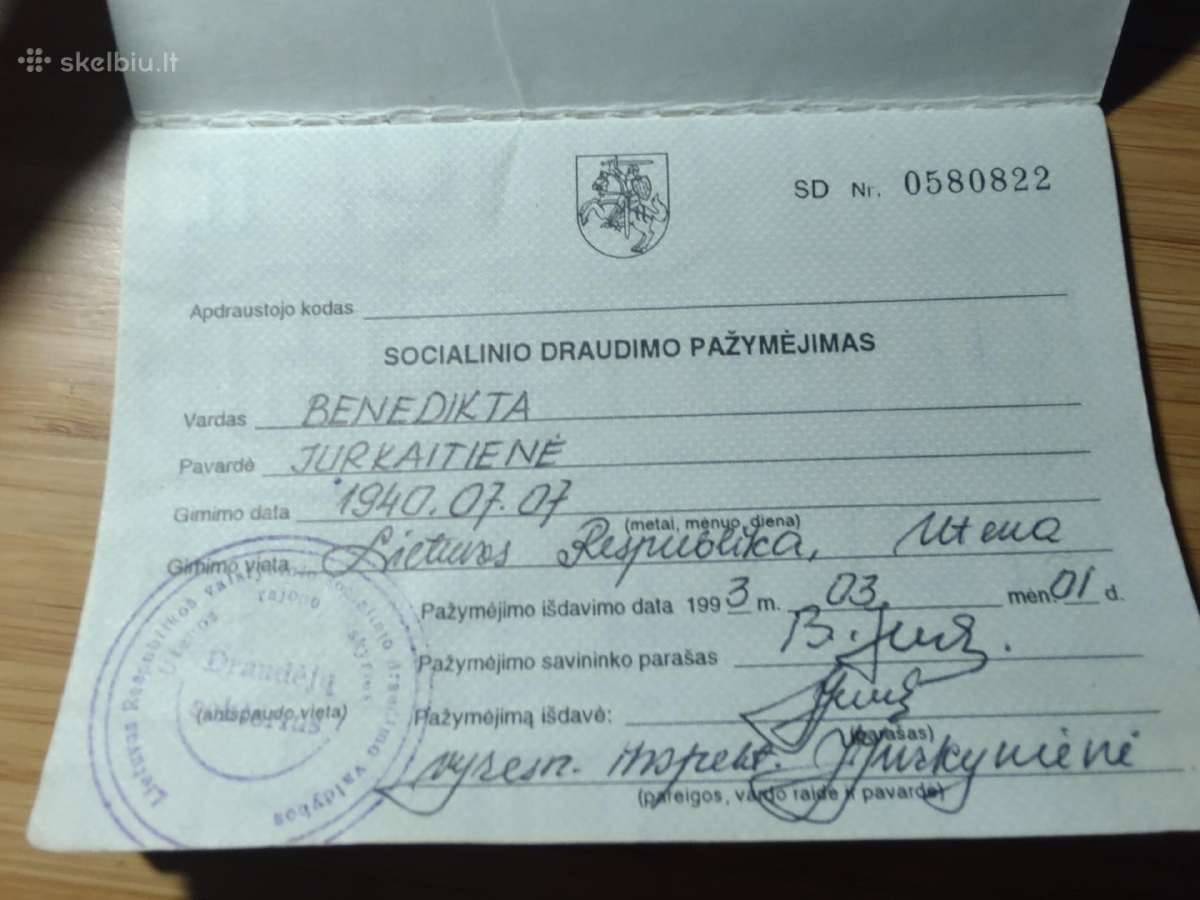 skelbiu.lt
SD Nr. 0580822
Apdraustojo kodas
SOCIALINIO DRAUDIMO PAŽYMĖJIMAS
Vardas BENEDIKTA
Pavardė JURKAITIENĖ
Gimimo data 1940.07.07
(metai, mėnuo, diena)
Gimimo vieta Lietuvos Respublika, Utena
Pažymėjimo išdavimo data 1993 m. 03. mėn. 01 d.
Pažymėjimo savininko parašas B. Jurk.
Pažymėjimą išdavė:
(parašas)
vyresn. inspekt.
(pareigos, vardo raidė ir pavardė)
(antspaudo vieta)
Lietuvos Respublikos valstybinio socialinio draudimo valdybos
Utenos rajono skyrius
Draudėjų